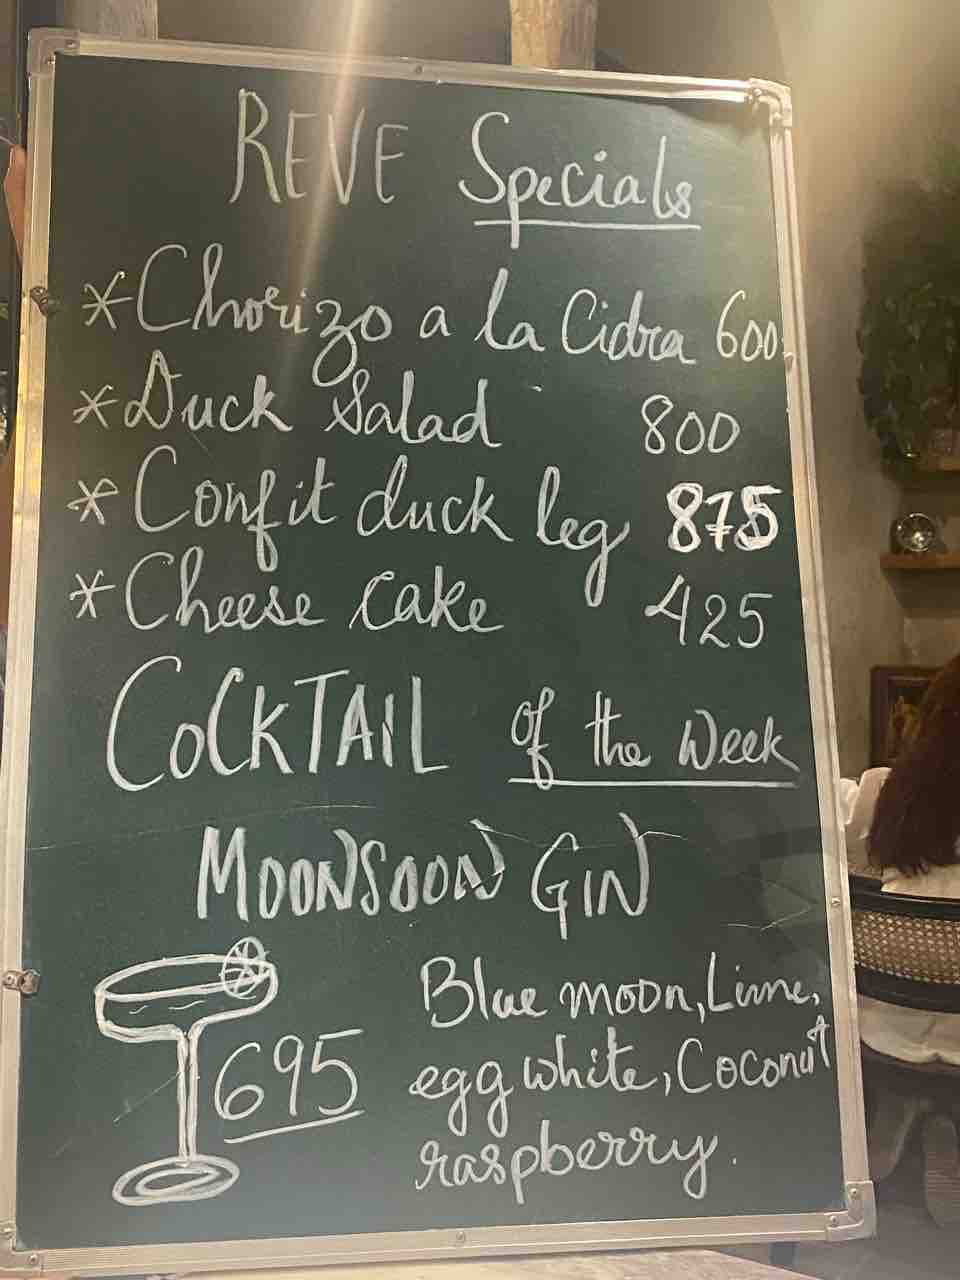 REVE Specials
* Chorizo a la Cidra 600
* Duck Salad 800
* Confit duck leg 875
* Cheese Cake 425
COCKTAIL of the Week
MOONSOON GIN
Blue moon, Lime,
egg white, Coconut
raspberry.
695